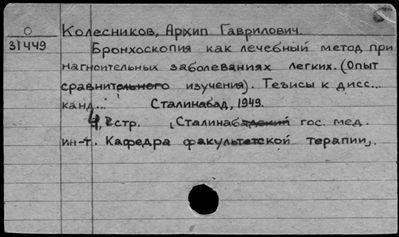 О
31449
Колесников, Архип Гаврилович.
Бронхоскопия как лечебный метод при
нагноительных заболеваниях легких. (Опыт
сравнительного изучения). Тезисы к дисс...
канд... Сталинабад, 1949.
4, стр. (Сталинабадский гос. мед.
ин-т. Кафедра факультетской терапии).